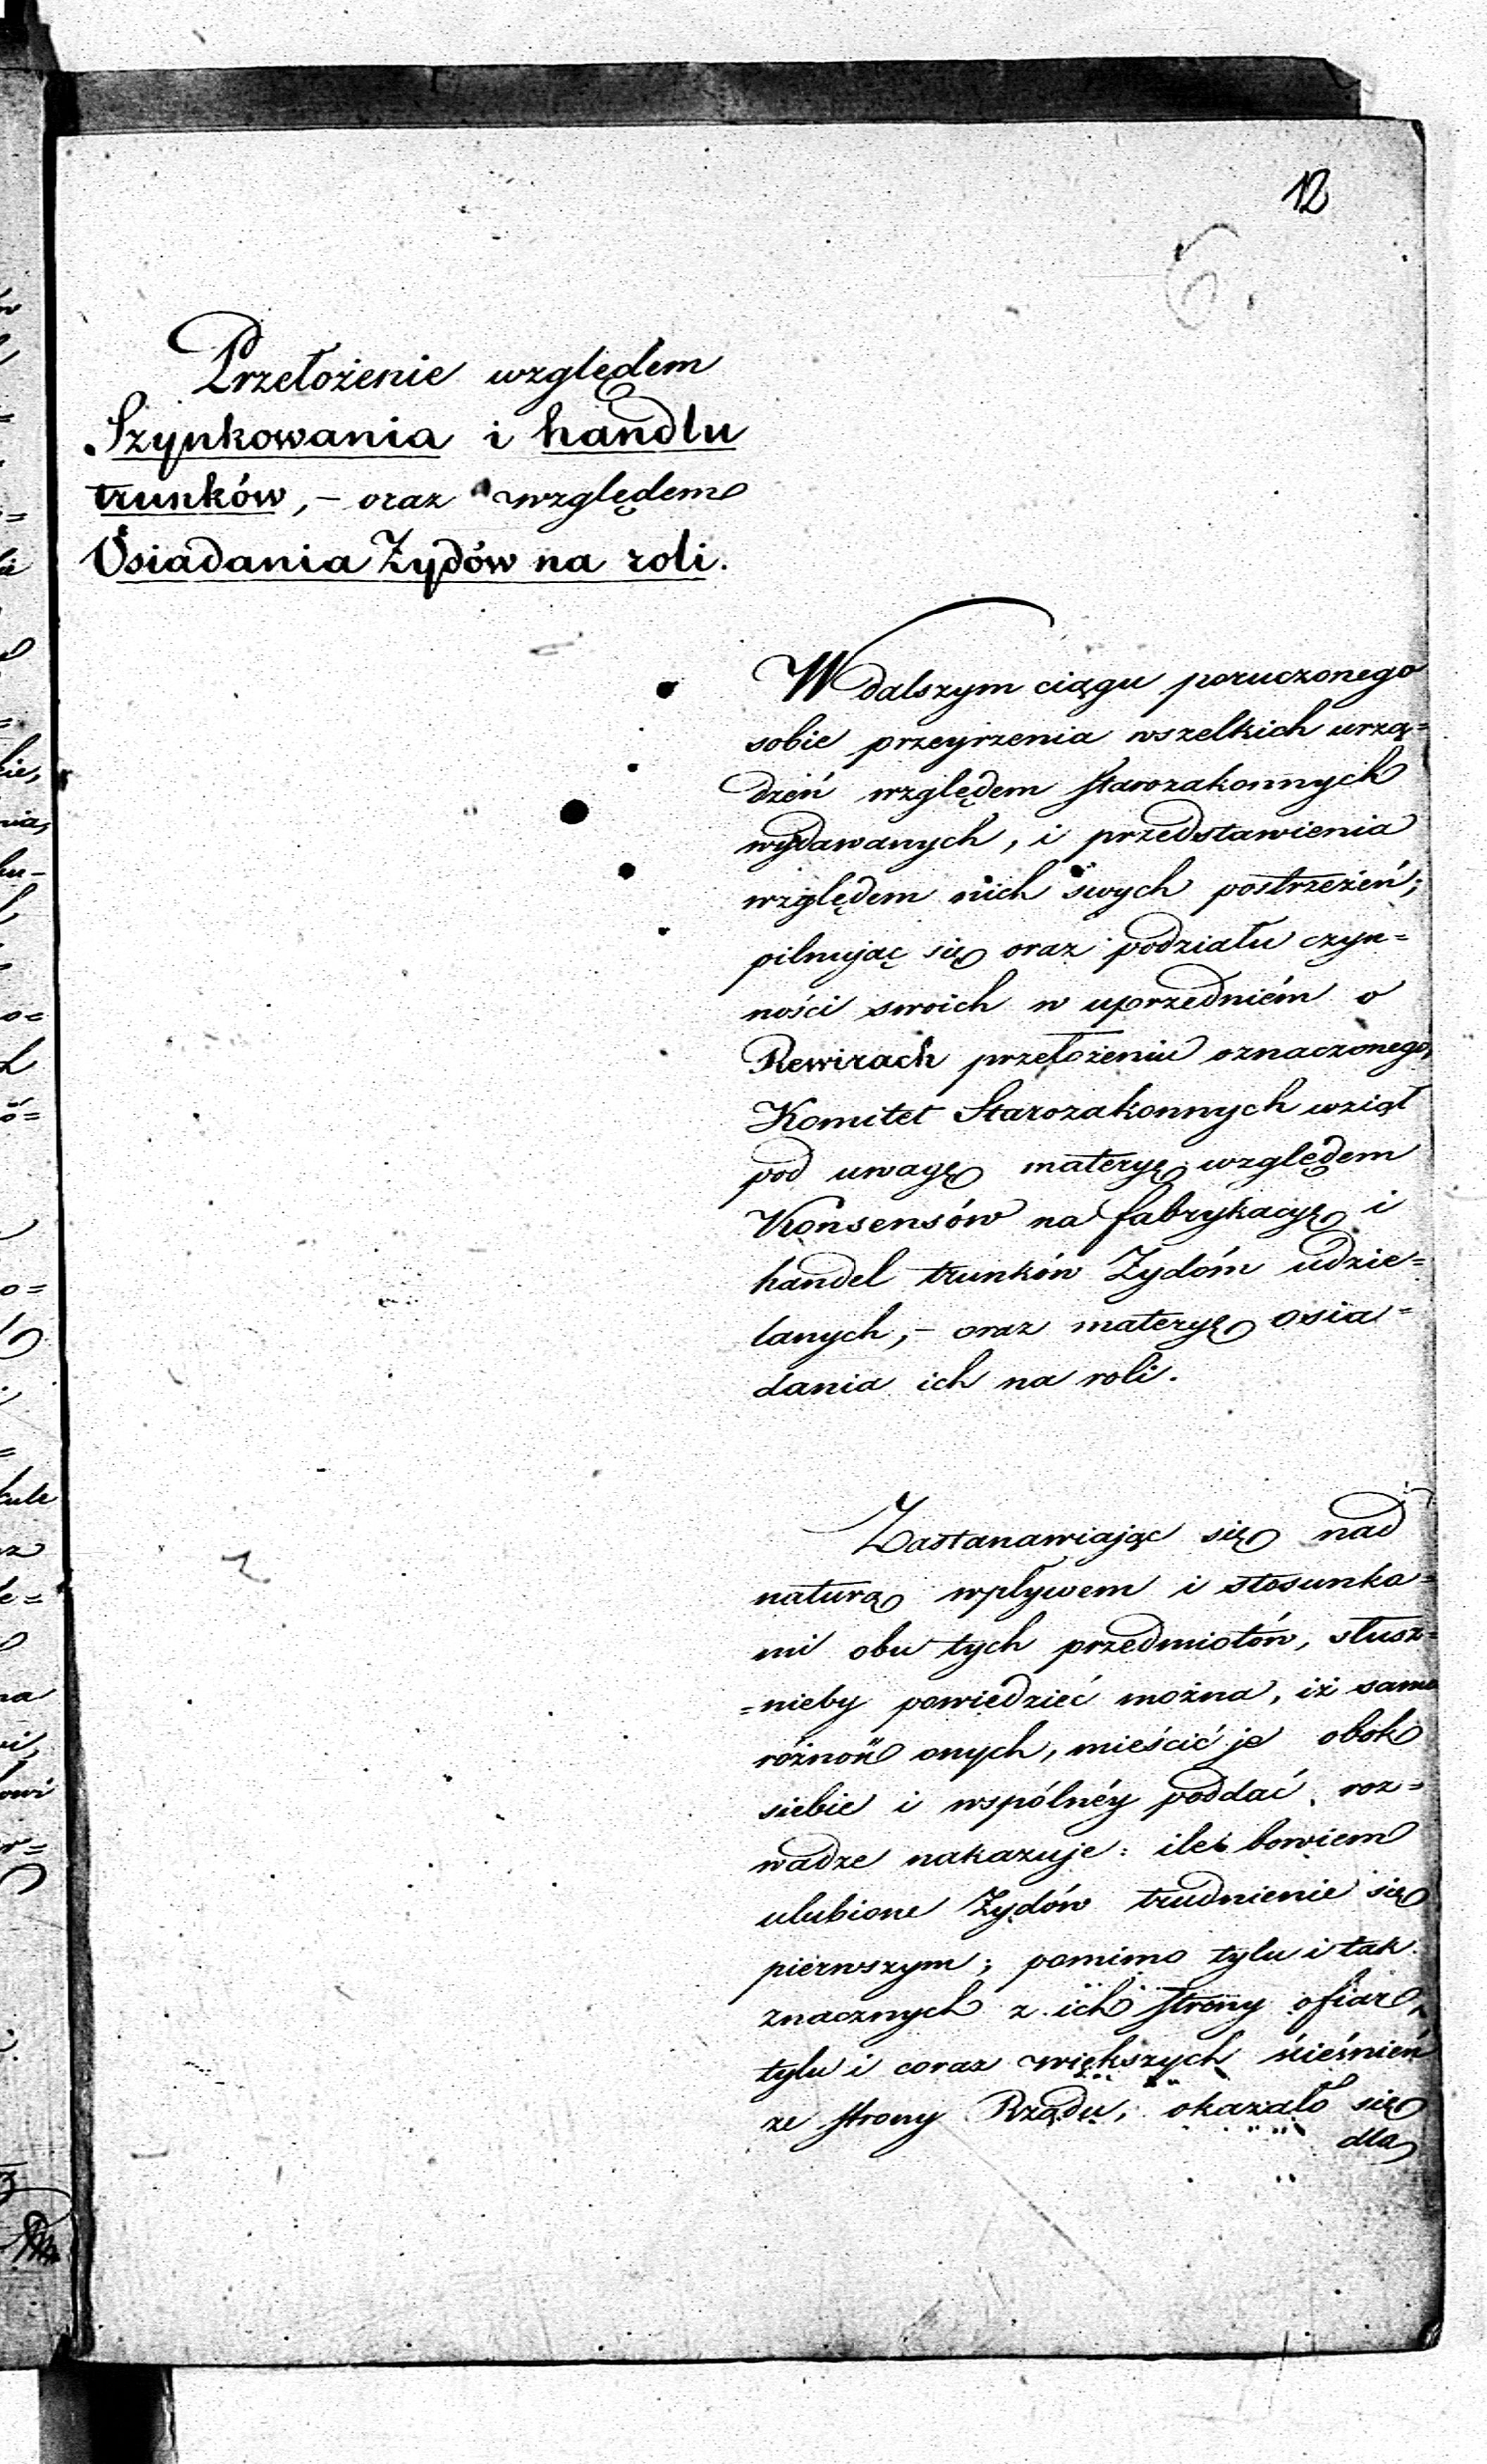 12
6.
Przełożenie względem
Szynkowania i handlu
trunków, – oraz względem
Osiadania Żydów na roli.
W dalszym ciągu poruczonego
sobie przeyrzenia wszelkich urzą=
dzeń względem starozakonnych
wydawanych, i przedstawienia
względem nich swych postrzeżeń;
pilnując się oraz podziału czyn=
ności swoich w uprzedniém o
Rewirach przełożeniu oznaczonego,
Komitet Starozakonnych wziął
pod uwagę materyę względem
Konsensów na fabrykacyę i
handel trunków Żydóm udzie=
lanych, – oraz materyę osia=
dania ich na roli.
Zastanawiając się nad
naturą wpływem i stosunka=
mi obu tych przedmiotów, słusz=
=nieby powiedzieć można, iż sama
onych, mieścić je obok
siebie i wspólnéy poddać roz=
wadze nakazuje: ile bowiem
ulubione Żydów trudnienie się
pierwszym; pomimo tylu i tak
znacznych z ich strony ofiar,
tylu i coraz większych ścieśnień
ze strony Rządu, okazało się
dla